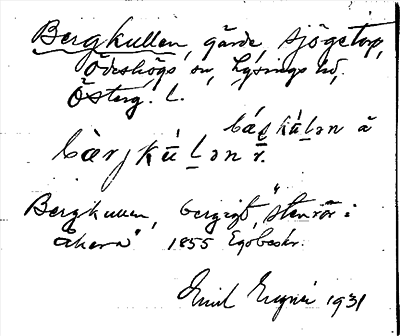 Bergkullen, gärde, Sjögetorp,
Ödeshögs sn, Lysings hd,
Österg. l.
bárku̇lən å
bàrjku̇lən r.
Bergkullen, bergigt, "stenrör i
åkern" 1855 Egobeskr.
Emil 1931